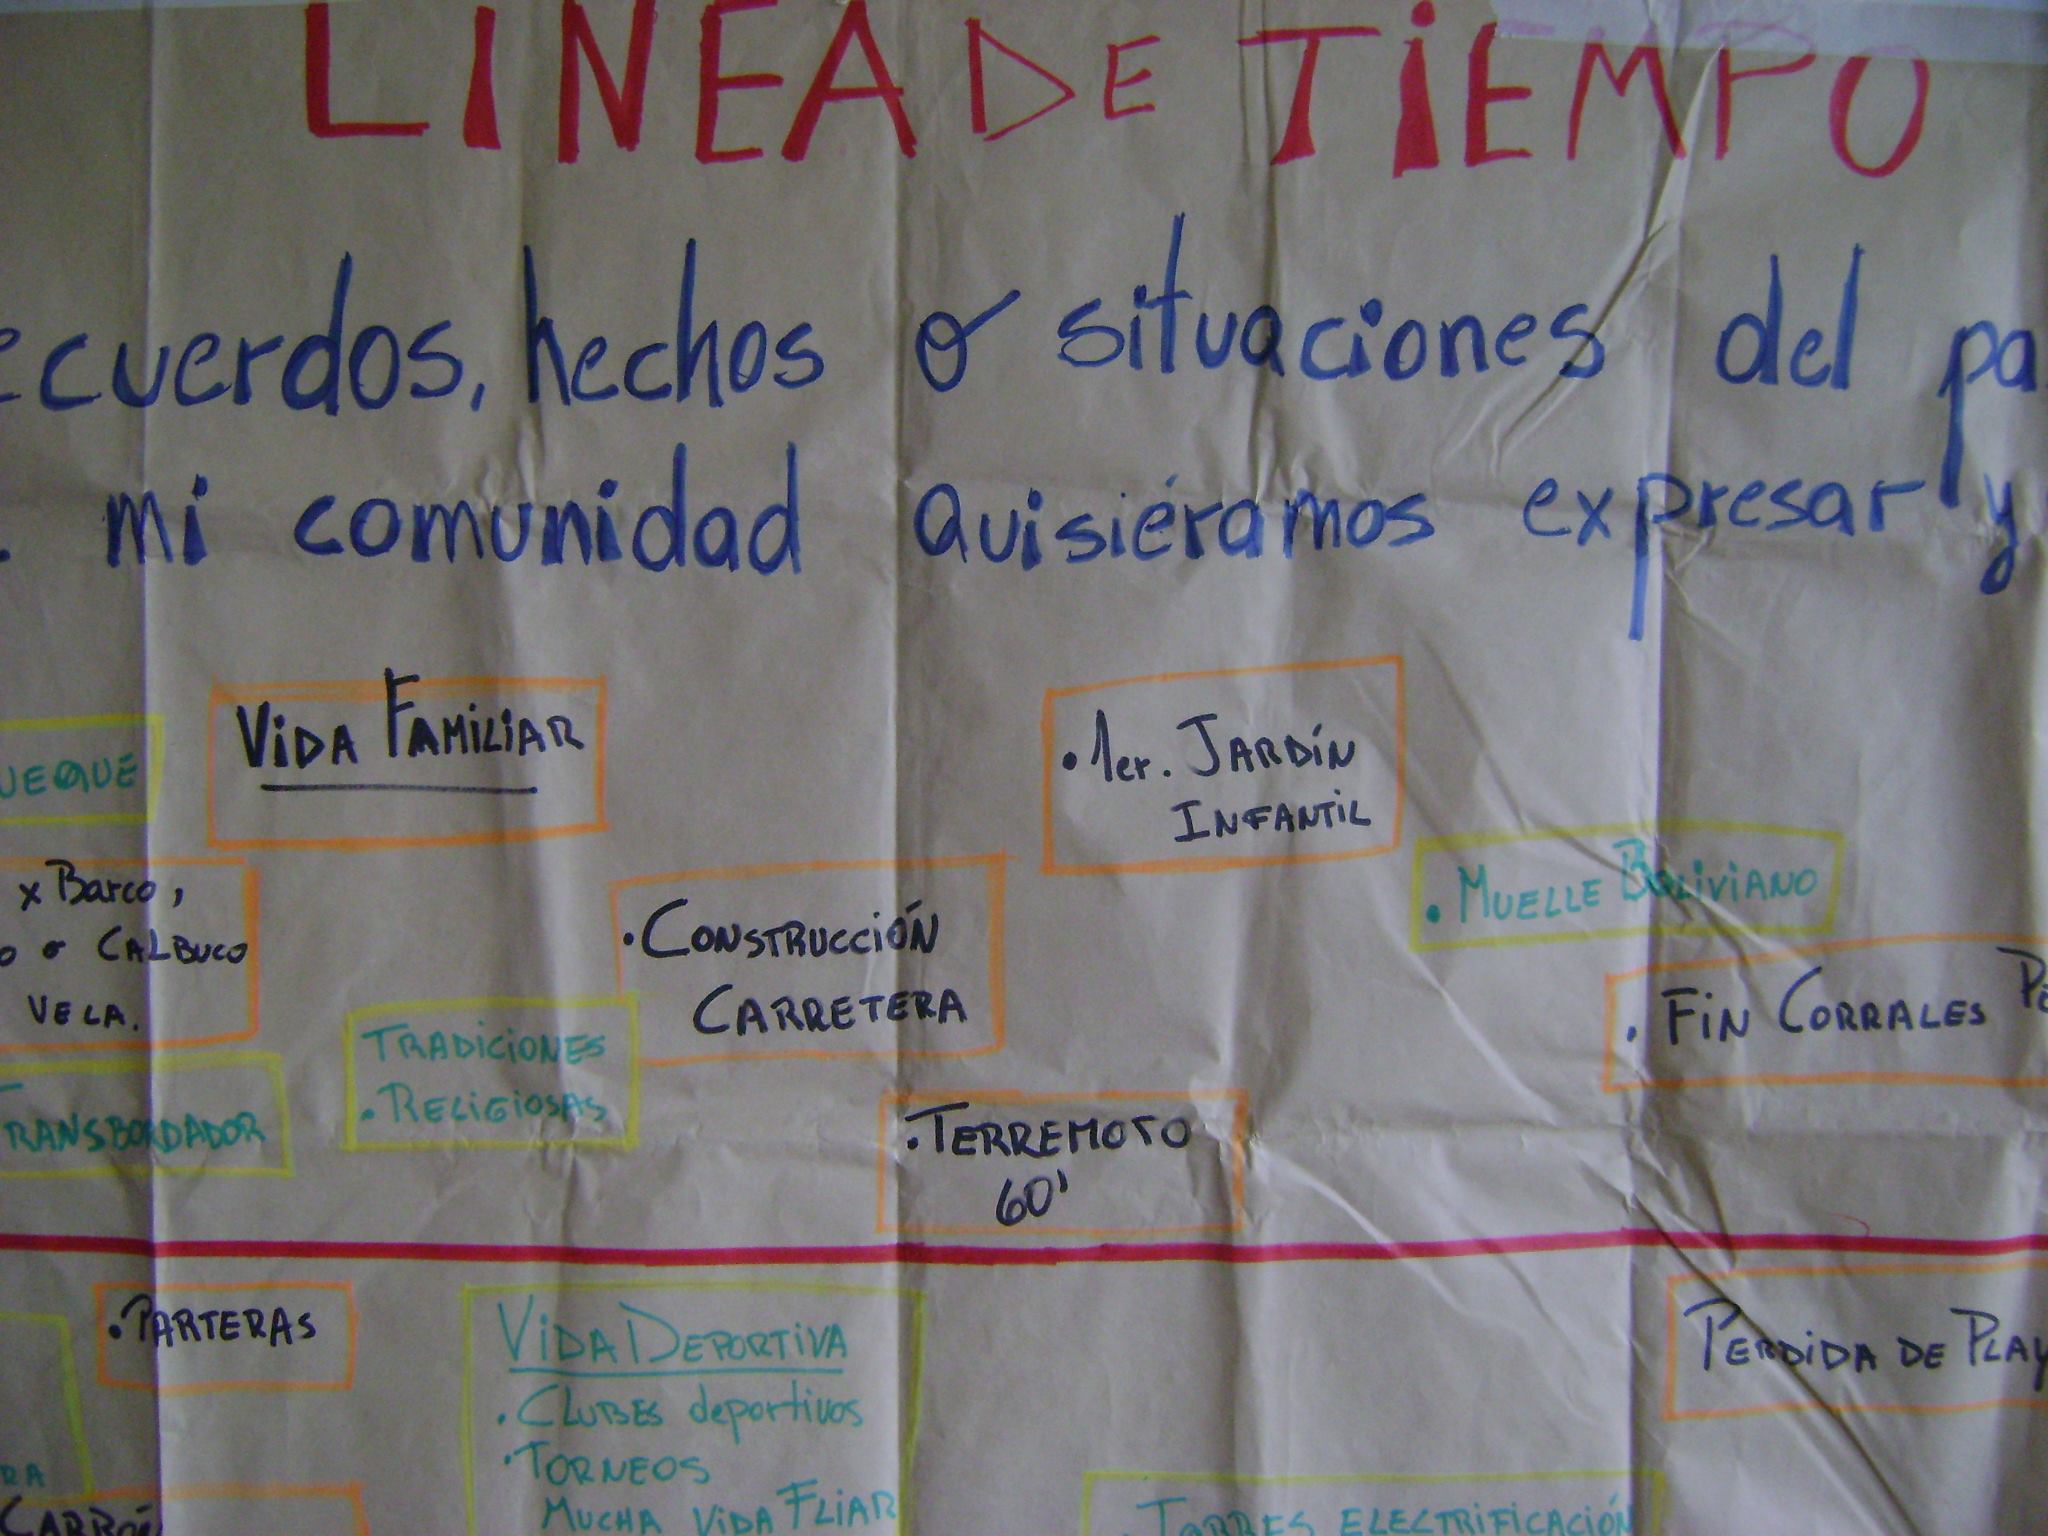 LINEA DE TIEMPO
ecuerdos, hechos o situaciones del pa
mi comunidad quisiéramos expresar y
UEQUE
VIDA FAMILIAR
• 1er. JARDÍN
INFANTIL
x Barco,
o o CALBUCO
VELA.
• CONSTRUCCIÓN
CARRETERA
• MUELLE BOLIVIANO
• FIN CORRALES PE
TRADICIONES
• RELIGIOSAS
TRANSBORDADOR
• TERREMOTO
60'
• PARTERAS
VIDA DEPORTIVA
• CLUBES deportivos
• TORNEOS
MUCHA VIDA FLIAR
PERDIDA DE PLAY
RA
CARBÓN
• TORRES ELECTRIFICACIÓN